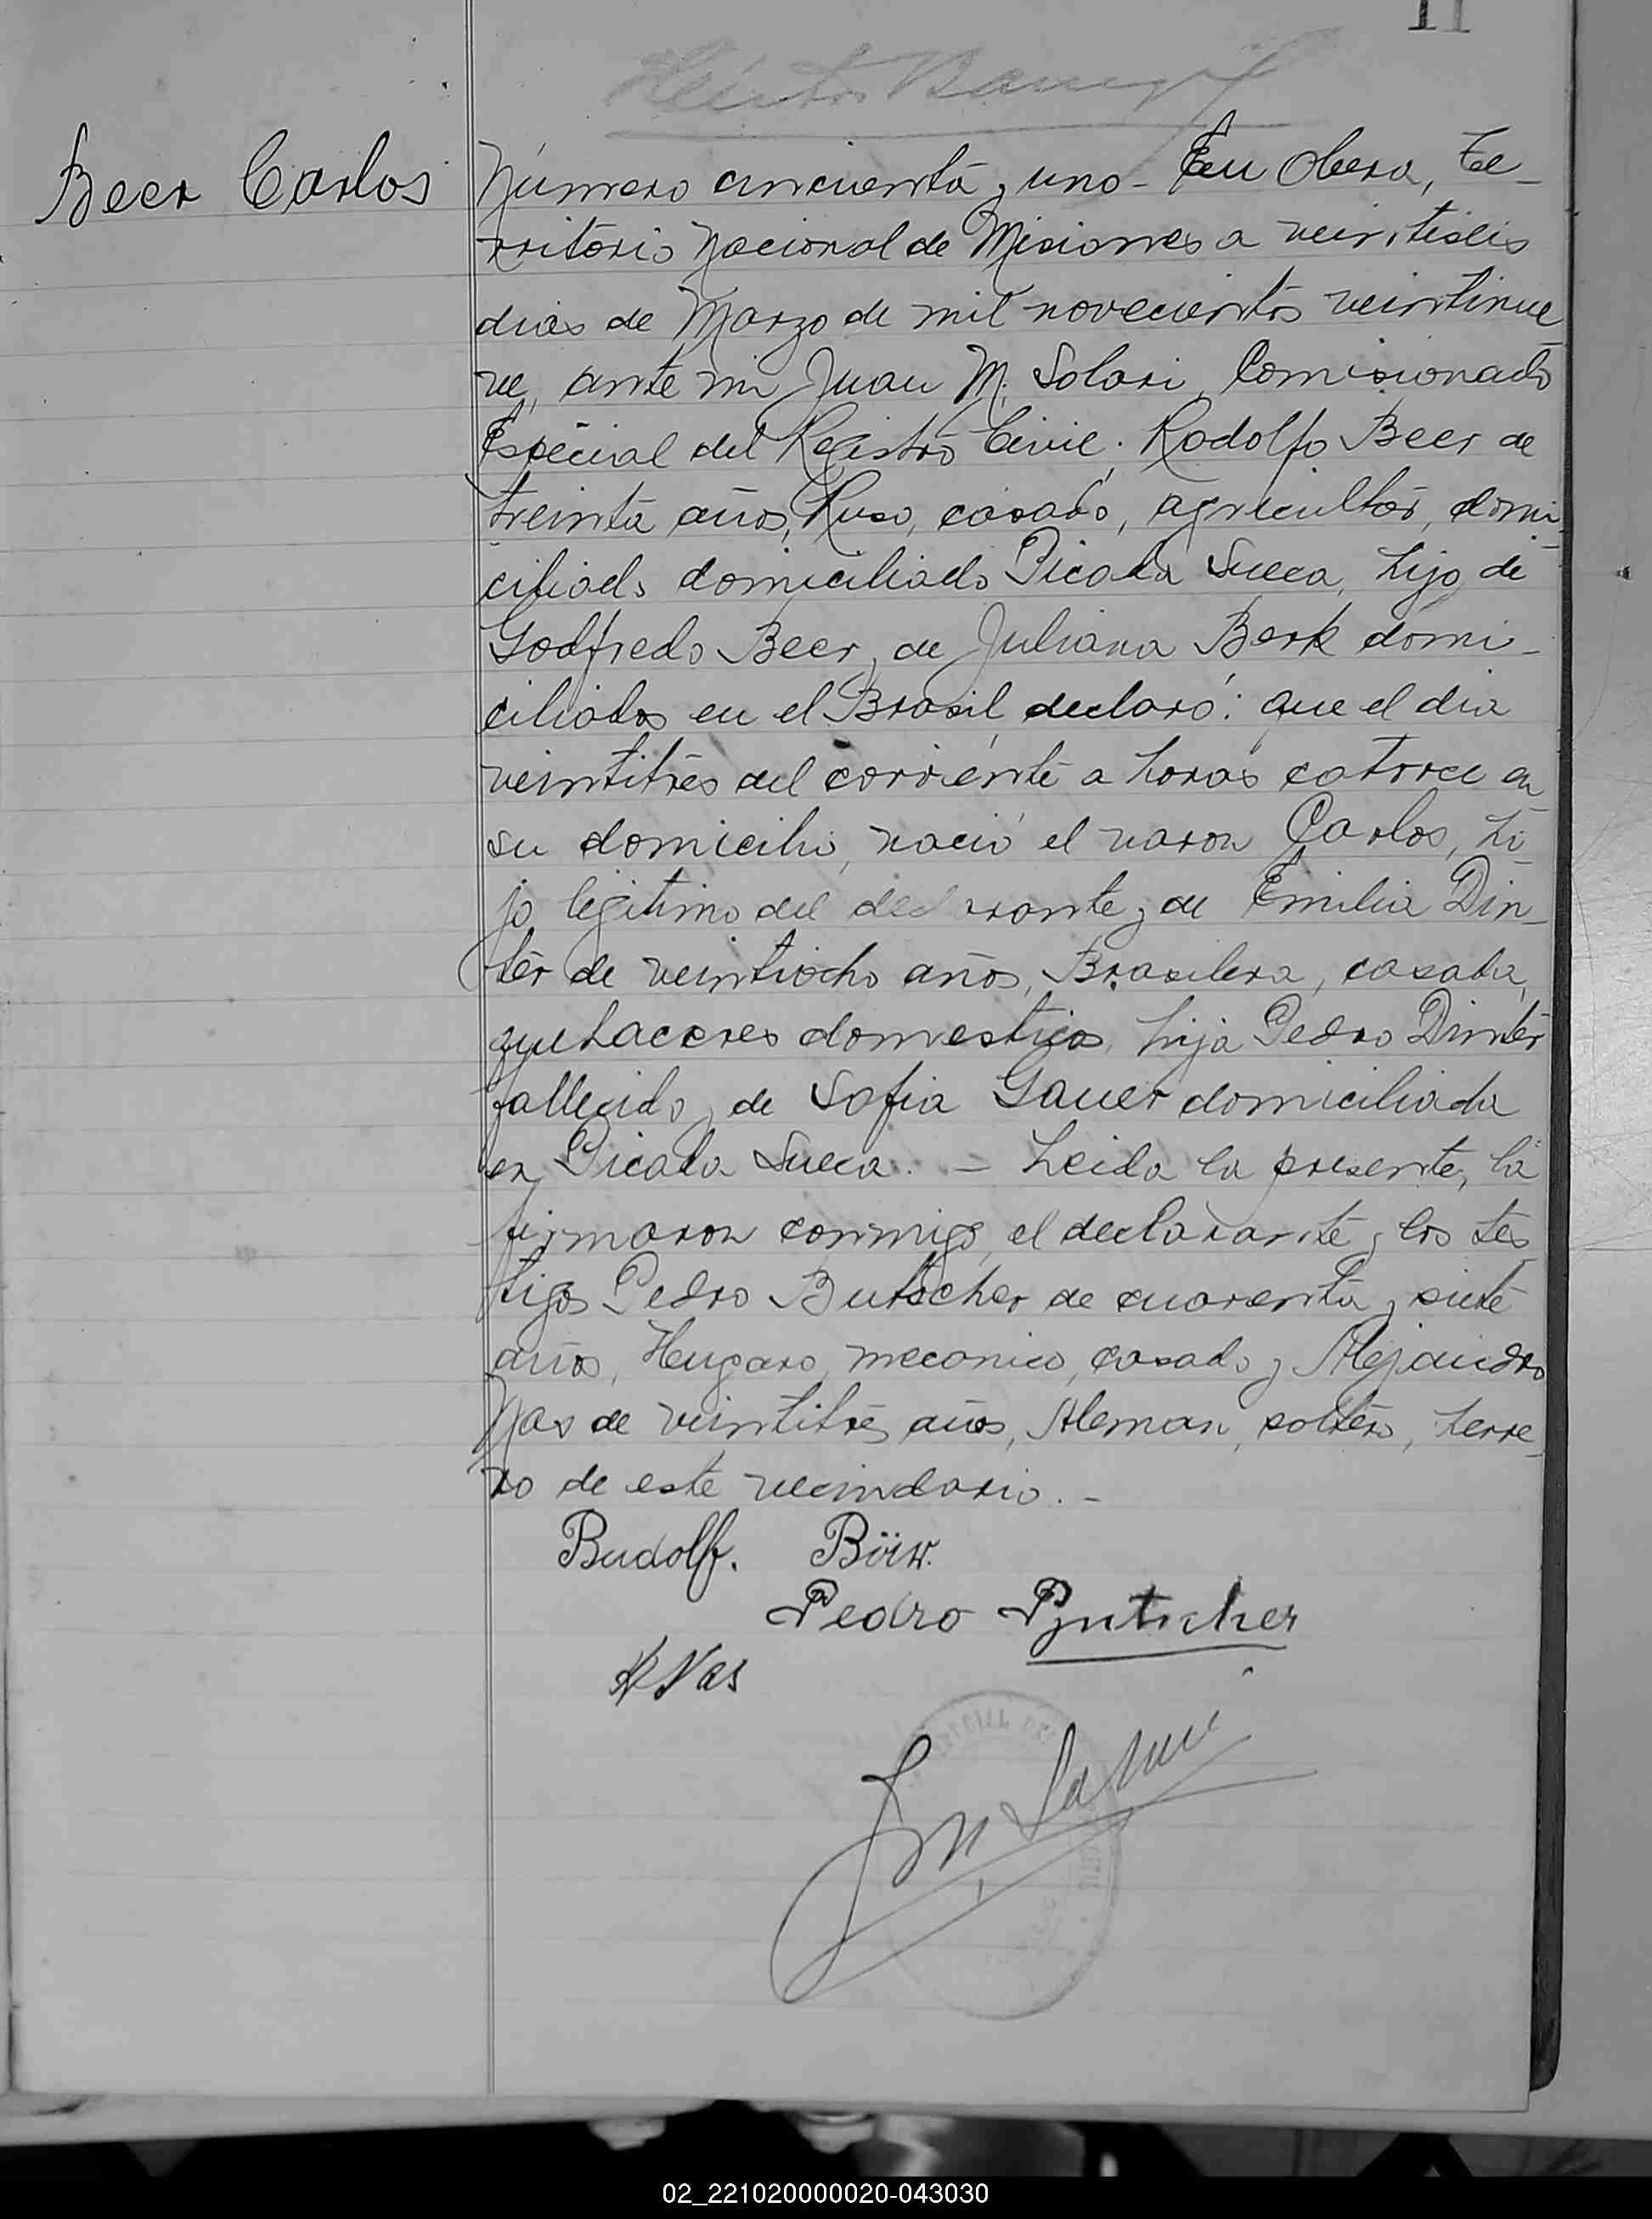 11
Beer Carlos
Número cincuenta y uno - En Obera, Te-
rritorio Nacional de Misiones a veintiseis
dias de Marzo de mil novecientos veintinue
ve, ante mi Juan M. Solari, Comisionado
Especial del Registro Civil; Rodolfo Beer de
treinta años, Ruso, casado, agricultor, domi-
ciliado domiciliado Picada Sueca, hijo de
Godfredo Beer y de Juliana Berk domi-
ciliados en el Brasil, declaró: que el dia
veintitrés del corriente a horas catorce en
su domicilio, nació el varon Carlos, hi-
jo legitimo del declarante y de Emilia Din-
ter de veintiocho años, Brasilera, casada,
quehaceres domesticos, hija Pedro Dinter
fallecido y de Sofia Gauer domiciliada
en Picada Sueca. - Leida la presente, la
firmaron conmigo, el declarante y los tes-
tigos Pedro Butscher de cuarenta y siete
años, Hungaro, mecanico, casado y Alejandro
Nas de veintitrés años, Aleman, soltero, herre-
ro de este vecindario. -
Rudolf. Böir.
Pedro Butscher
A Nas
02_221020000020-043030